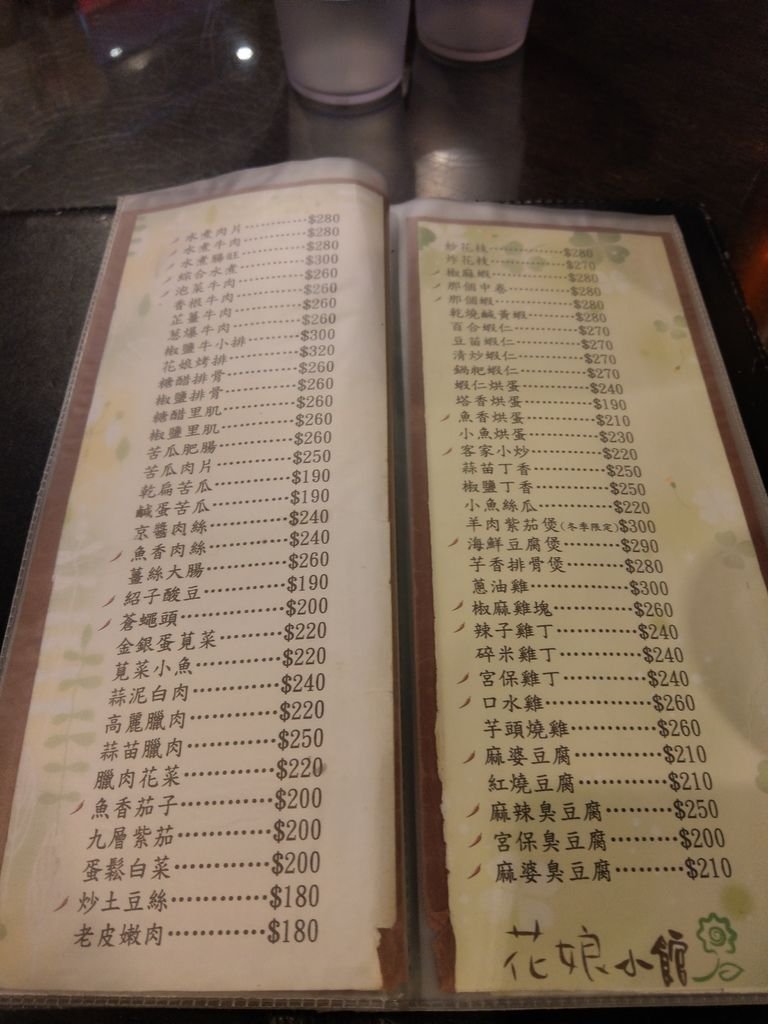 水煮肉片············$280
水煮牛肉············$280
水煮腸旺············$280
綜合水煮············$300
泡菜牛肉············$260
香根牛肉············$260
芷薑牛肉············$260
蔥爆牛肉············$260
椒鹽牛小排·········$300
花娘烤排············$320
糖醋排骨············$260
椒鹽排骨············$260
糖醋里肌············$260
椒鹽里肌············$260
苦瓜肥腸············$260
苦瓜肉片············$250
乾扁苦瓜············$190
鹹蛋苦瓜············$190
京醬肉絲············$240
魚香肉絲············$240
薑絲大腸············$260
紹子酸豆············$190
蒼蠅頭···············$200
金銀蛋莧菜·········$220
莧菜小魚············$220
蒜泥白肉············$240
高麗臘肉············$220
蒜苗臘肉············$250
臘肉花菜············$220
魚香茄子············$200
九層紫茄············$200
蛋鬆白菜············$200
炒土豆絲············$180
老皮嫩肉············$180
炒花枝···············$280
炸花枝···············$270
椒麻蝦···············$280
那個中卷············$280
那個蝦···············$280
乾燒鹹黃蝦·········$280
百合蝦仁············$270
豆苗蝦仁············$270
清炒蝦仁············$270
鍋粑蝦仁············$270
蝦仁烘蛋············$240
塔香烘蛋············$190
魚香烘蛋············$210
小魚烘蛋············$230
客家小炒············$220
蒜苗丁香············$250
椒鹽丁香············$250
小魚絲瓜············$220
羊肉紫茄煲(冬季限定)$300
海鮮豆腐煲·········$290
芋香排骨煲·········$280
蔥油雞···············$300
椒麻雞塊············$260
辣子雞丁············$240
碎米雞丁············$240
宮保雞丁············$240
口水雞···············$260
芋頭燒雞············$260
麻婆豆腐············$210
紅燒豆腐············$210
麻辣臭豆腐·········$250
宮保臭豆腐·········$200
麻婆臭豆腐·········$210
花娘小館